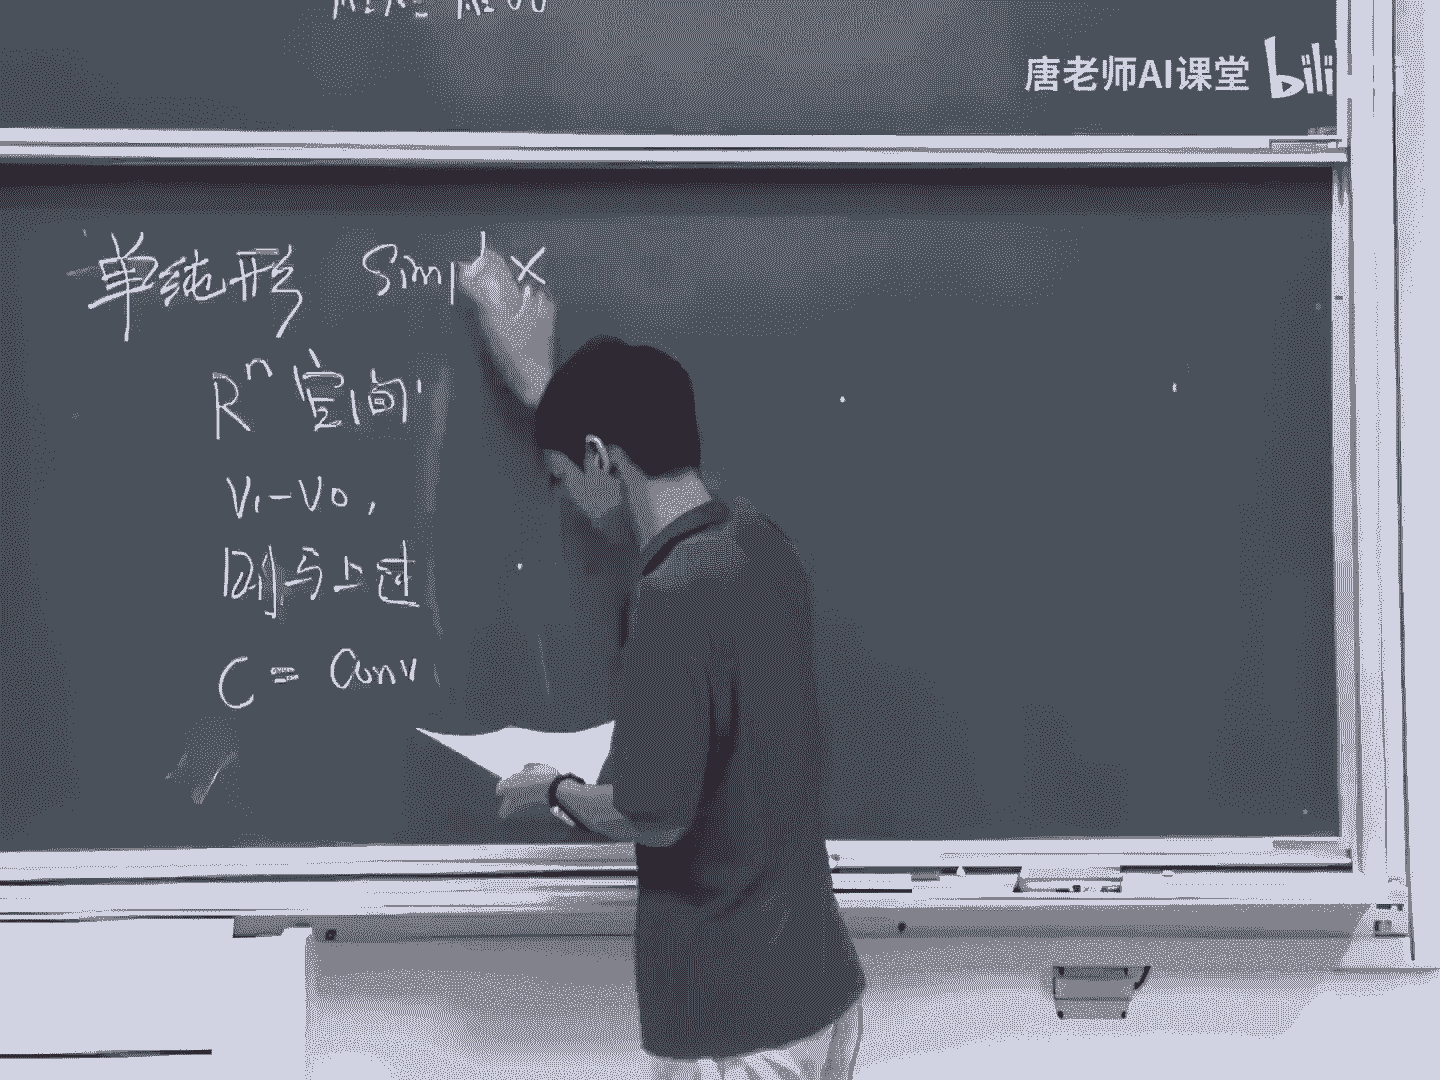 唐老师AI课堂 bili
单纯形 Simplx
Rⁿ 空间
V₁-V₀,
则与上过
C = Conv